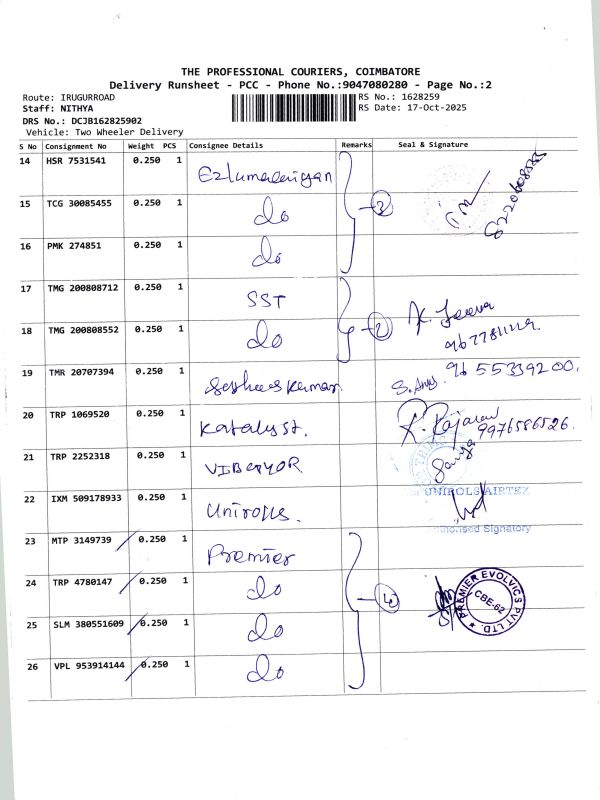 THE PROFESSIONAL COURIERS, COIMBATORE
Delivery Runsheet - PCC - Phone No.:9047080280 - Page No.:2
Route: IRUGURROAD
RS No.: 1628259
Staff: NITHYA
RS Date: 17-Oct-2025
DRS No.: DCJB162825902
Vehicle: Two Wheeler Delivery
S No Consignment No Weight PCS Consignee Details Remarks Seal & Signature
14 HSR 7531541 0.250 1 Ezlumalaiyan
15 TCG 30085455 0.250 1 do 3
16 PMK 274851 0.250 1 do
17 TMG 200808712 0.250 1 SST
18 TMG 200808552 0.250 1 do 2
19 TMR 20707394 0.250 1 9655339200.
20 TRP 1069520 0.250 1 Katalyst. 9976586526.
21 TRP 2252318 0.250 1 VIBGYOR
22 IXM 509178933 0.250 1 Unirolls. UNIROLS AIRTEX
Authorised Signatory
23 MTP 3149739 0.250 1 Premier
24 TRP 4780147 0.250 1 do 4 PREMIER EVOLVICS PVT LTD. CBE-62
25 SLM 380551609 0.250 1 do
26 VPL 953914144 0.250 1 do